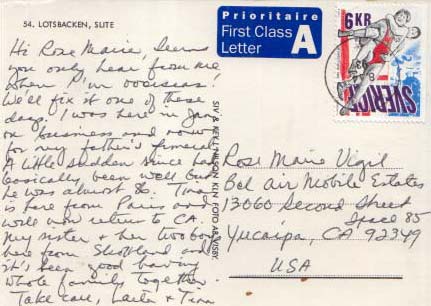 54. LOTSBACKEN, SLITE
Prioritaire
First Class
Letter
A
6KR
SVERIGE
Hi Rose Marie, Seems
you only hear from me
when I'm overseas!
We'll fix it one of these
days. I was here in Jan
on business and now
for my father's funeral.
A little sudden since he's
basically been well but
he was almost 86. Tina
is here from Paris and
will now return to CA.
My sister & her two boys
here from Scotland and
it's been good having
whole family together.
Take care, & Tina
SIV & KELL NILSON, KLN FOTO AB, VISBY
Rose Marie Vigil
Bel Air Mobile Estates
13060 Second Street
Space 85
Yucaipa, CA 92349
USA